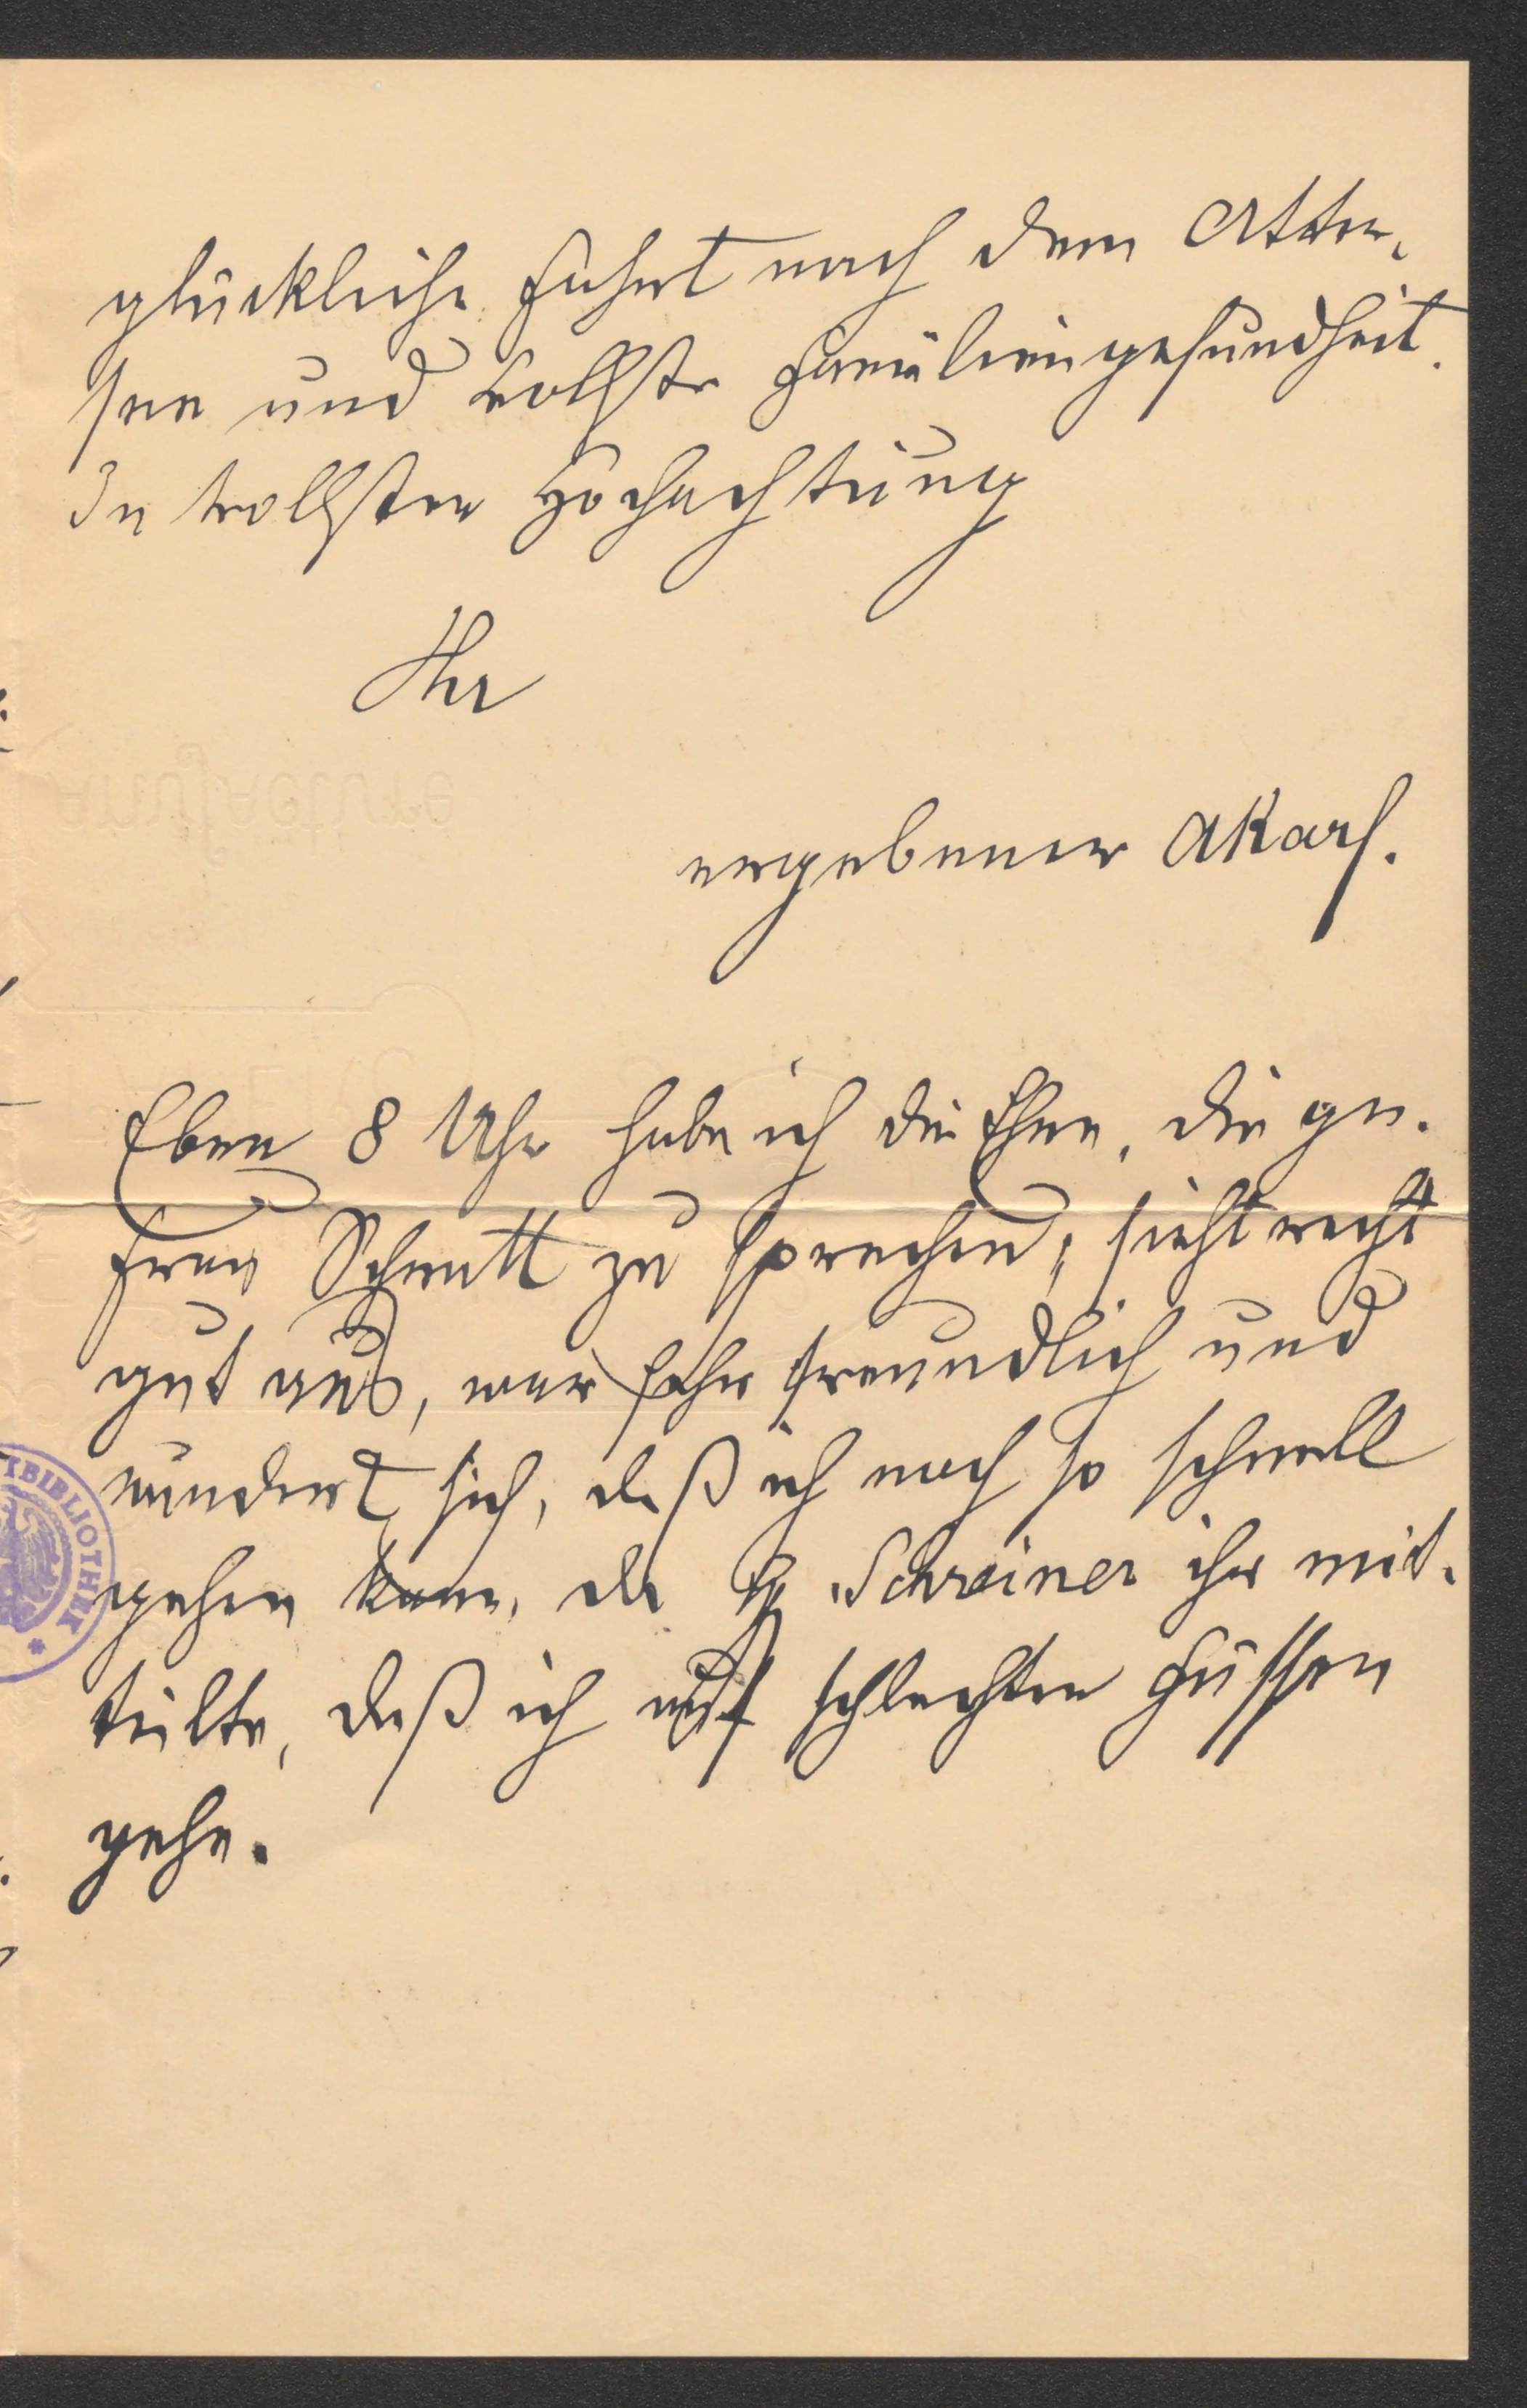 glückliche Fahrt nach dem Atter-
see und vollste Familiengesundheit.
In vollster Hochachtung
Ihr
ergebener AKarf.
Eben 8 Uhr habe ich die Ehre, die gn.
Frau Schmitt zu sprechen; sieht recht
gut aus, war sehr freundlich und
wundert sich, daß ich noch so schnell
gehen kann, da H Schreiner ihr mit-
teilte, daß ich auf schlechten Füssen
gehe.
BIBLIOTHEK